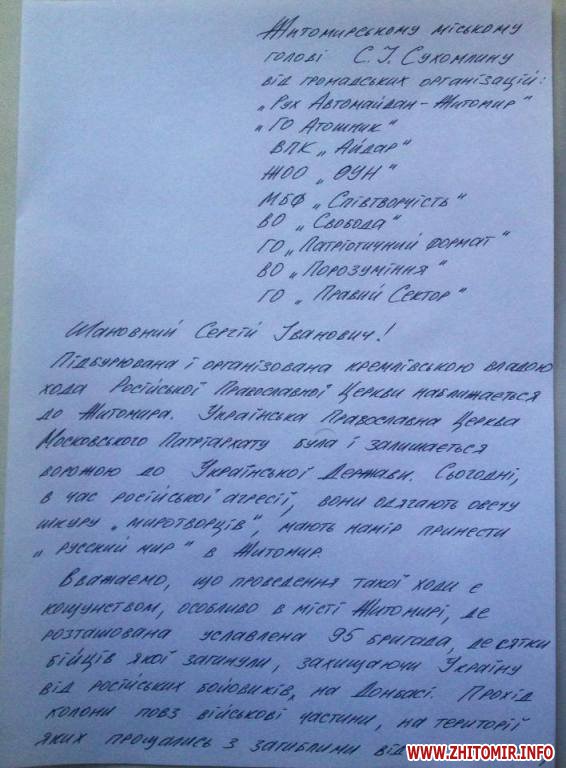 Житомирському міському
голові С.І. Сухомлину
від громадських організацій:
„Рух Автомайдан-Житомир"
„ГО Атошник"
ВПК „Айдар"
ЖОО „ОУН"
МБФ „Співтворчість"
ВО „Свобода"
ГО „Патріотичний формат"
ВО „Порозуміння"
ГО „Правий Сектор"
Шановний Сергій Іванович!
Підбурювана і організована кремлівською владою
хода Російської Православної Церкви наближається
до Житомира. Українська Православна Церква
Московського Патріархату була і залишається
ворожою до Української Держави. Сьогодні,
в час російської агресії, вони одягають овечу
шкуру „миротворців", мають намір принести
„русский мир" в Житомир.
Вважаємо, що проведення такої ходи є
кощунством, особливо в місті Житомирі, де
розташована уславлена 95 бригада, десятки
бійців якої загинули, захищаючи Україну
від російських бойовиків, на Донбасі. Прохід
колони повз військові частини, на території
яких прощались з загиблими від
www.zhitomir.info